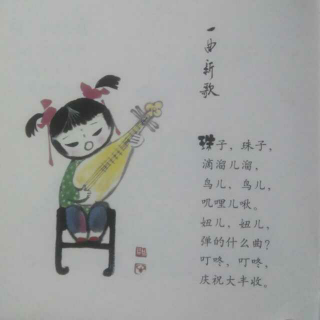 一曲新歌
珠子，珠子，
滴溜儿溜，
鸟儿，鸟儿，
叽哩儿啾。
妞儿，妞儿，
弹的什么曲？
叮咚，叮咚，
庆祝大丰收。